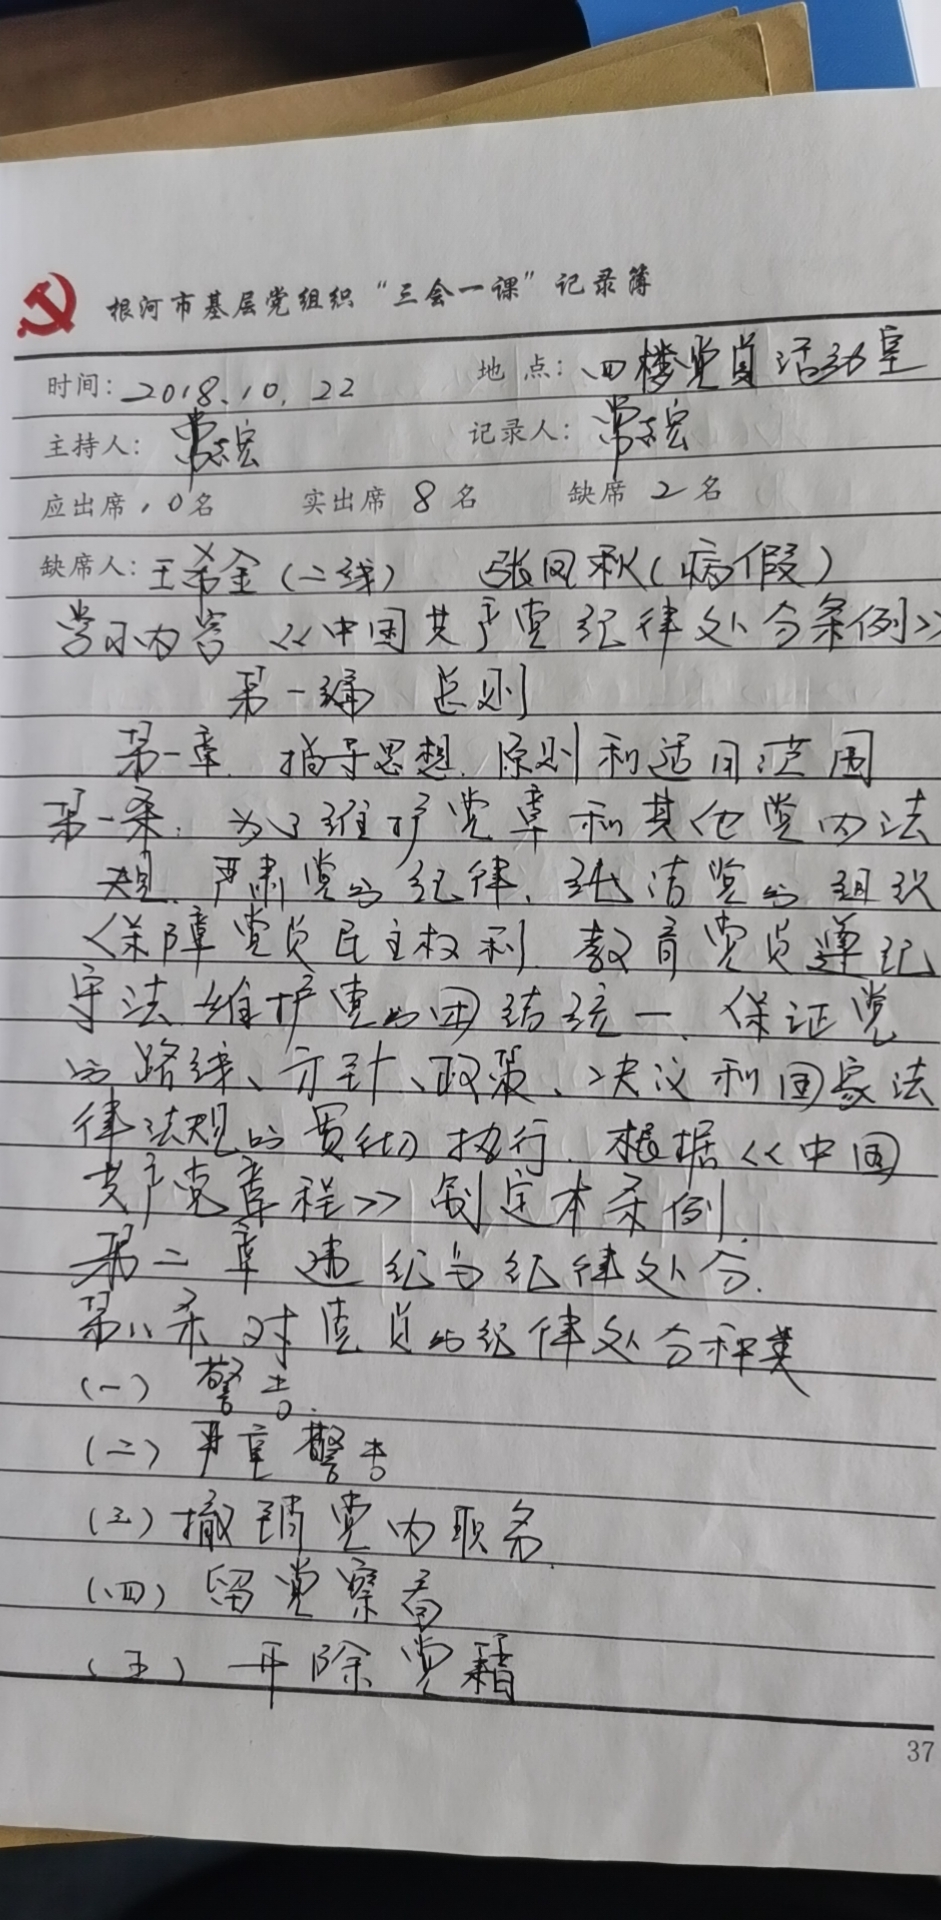 根河市基层党组织“三会一课”记录簿
时间：2018.10.22 地点：四楼党员活动室
主持人：常志宏 记录人：常志宏
应出席10名 实出席8名 缺席2名
缺席人：王希金（二线） 张凤秋（病假）
学习内容《中国共产党纪律处分条例》
第一编 总则
第一章.指导思想.原则和适用范围
第一条：为了维护党章和其他党内法
规.严肃党的纪律、纯洁党的组织
保障党员民主权利.教育党员遵纪
守法 维护党的团结统一、保证党
的路线、方针、政策、决议和国家法
律法规的贯彻执行.根据《中国
共产党章程》制定本条例.
第二章 违纪与纪律处分.
第八条 对党员的纪律处分种类
（一）警告.
（二）严重警告
（三）撤销党内职务.
（四）留党察看
（五）开除党籍
37